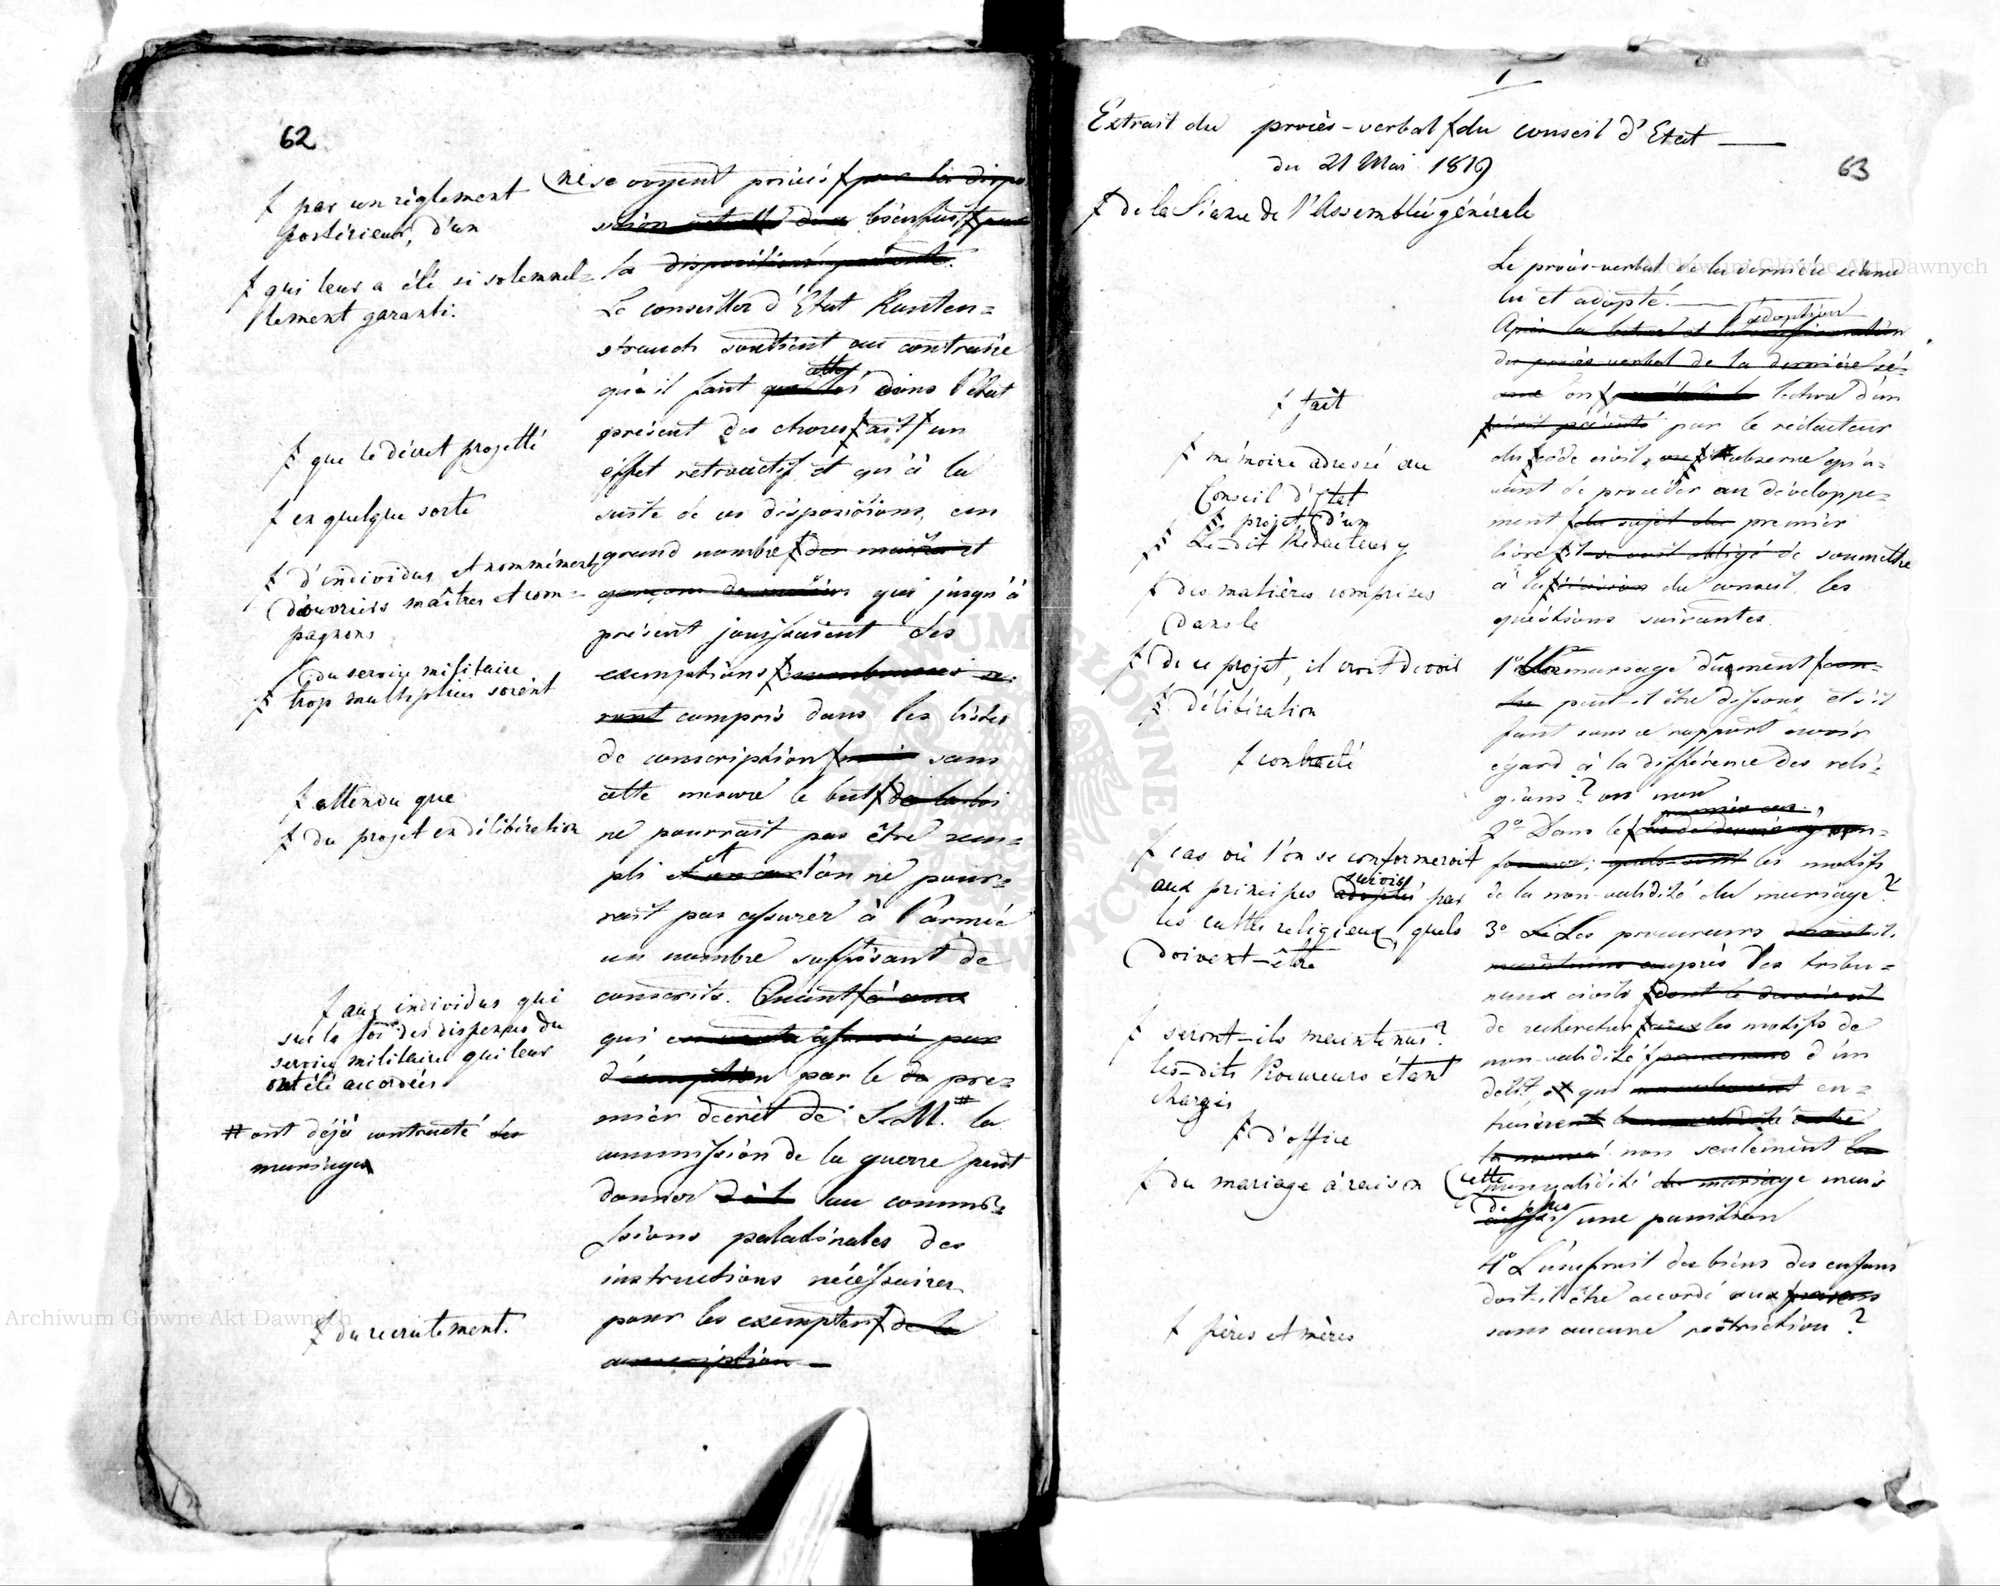 62
ƒ par un règlement
postérieur, d'un
ƒ qui leur a été si solemnel=
lement garanti.
ƒ que le décret projetté
ƒ en quelque sorte
ƒ d'individus et nommément
d'ouvriers maîtres et com=
pagnons
du service militaire
ƒ trop multipliées soient
ƒ attendu que
ƒ du projet en délibération
ƒ aux individus qui
sur la foi des dispenses du
service militaire qui leur
ont été accordées
# ont déjà contracté des
mariages
ƒ du recrutement.
ne se voyent privés ƒ par la dispo
sition actuelle d'un bienfait ƒ par
la disposition présente.
Le conseiller d'Etat Ranten=
strauch soutient au contraire
qu'il faut que dans l'état
présent des choses ƒ ait ƒ un
effet retroactif et qu'à la
suite de ces dispositions, un
grand nombre ƒ des maîtres et
garçons de métiers qui jusqu'à
présent jouissaient des
exemptions ƒ nombreuses se=
ront compris dans les listes
de conscription ƒ sans
cette mesure le but ƒ de la loi
ne pourrait pas être rem=
pli et l'on ne pour=
rait pas assurer à l'armée
un nombre suffisant de
conscrits. Quant ƒ à ceux
qui
d'exemption par le de pre=
mier décret de S. M. # la
commission de la guerre peut
donner aux commis=
sions palatinales des
instructions nécessaires
pour les exempter ƒ de la
conscription —
1
Extrait du procès-verbal ƒ du conseil d'Etat —
du 21 Mai 1810
63
ƒ de la Séance de l'Assemblée générale
ƒ fait
ƒ mémoire adressé au
Conseil d'Etat
projet d'un
Le-dit Rédacteur
ƒ des matières comprises
dans le
ƒ de ce projet, il croit devoir
ƒ délibération
ƒ contracté
ƒ cas où l'on se conformeroit
suivis
aux principes adoptés par
les cultes religieux, quels
doivent-être
ƒ seront-ils maintenus?
les-dits Procureurs étant
chargés
ƒ d'office
ƒ du mariage à raison
ƒ pères et mères
Le procès-verbal de la dernière séance
lu et adopté. —
adoption
Après la lecture et la confirmation
du procès verbal de la dernière sé=
ance on ƒ lecture d'un
écrit présenté par le rédacteur
du ƒ code civil, observe qu'a=
vant de procéder au développe=
ment ƒ du sujet du premier
livre ƒ il se voit obligé de soumettre
à la ƒ décision du conseil les
questions suivantes.
1° Un mariage dûment ƒ con=
clu peut-il être dissous, et s'il
faut sous ce rapport avoir
égard à la différence des reli=
gions? ou non
premier cas,
2° Dans le ƒ
les motifs
de la non-validité du mariage?
3° Les procureurs
auprès des tribu=
naux civils ƒ dont le devoir est
de rechercher ƒ les motifs de
non-validité ƒ d'un
délit, et qui en=
traînent
non seulement la
cette
non validité du mariage mais
de plus
aussi une punition
4° L'usufruit des biens des enfans
doit-il être accordé aux ƒ parens
sans aucune restriction?
Archiwum Główne Akt Dawnych
Archiwum Główne Akt Dawnych